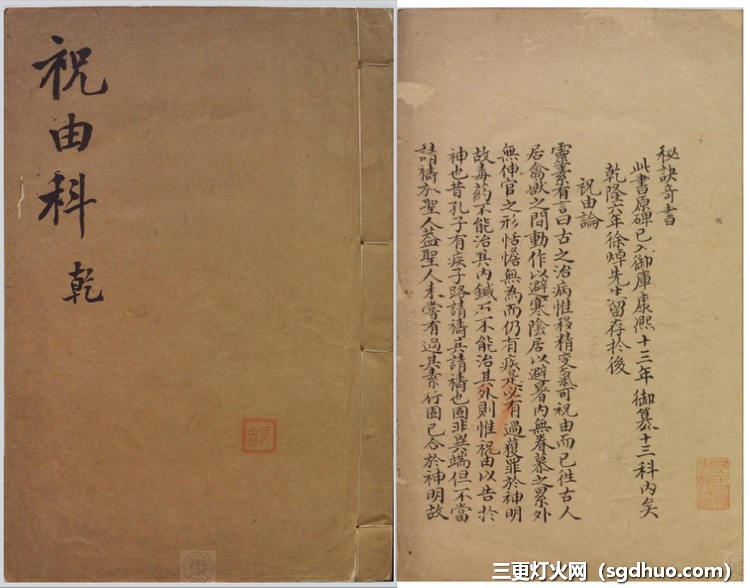 祝由科
乾
秘訣奇書
此書原碑已入御庫康熙十三年御纂十三科內矣
乾隆六年徐焯先生留存於後
祝由論
靈素有言曰古之治病惟移精变氣可祝由而已徃古人
居禽獸之間動作以避寒陰居以避暑內無眷慕之累外
無伸官之形恬憺無為而仍有疾是必有過獲罪於神明
故毒药不能治其內鍼石不能治其外則惟祝由以告於
神也昔孔子有疾子路請禱兵請禱也固非異端但不當
請禱於聖人葢聖人未嘗有過其素行固已合於神明故
三更灯火网（sgdhuo.com）